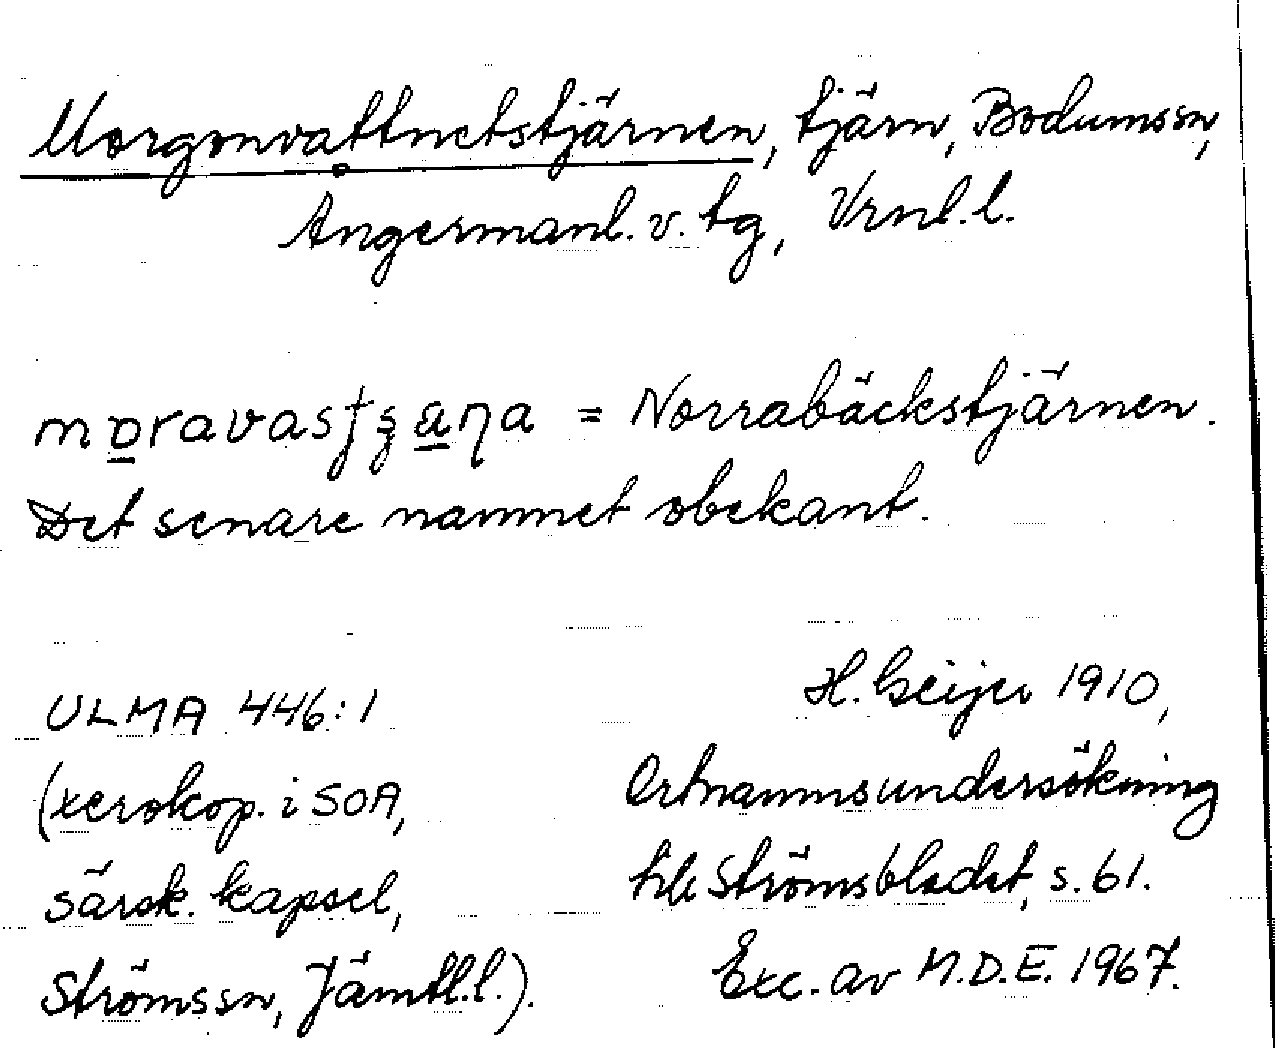 Morgonvattnetstjärnen, tjärn, Bodumssn,
Ångermanl. v. tg, Vrnl. l.
= Norrabäckstjärnen.
Det senare namnet obekant.
ULMA 446:1
(xerokop. i SOA,
särsk. kapsel,
Strömssn, Jämtl.l.).
H. Geijer 1910,
Ortnamnsundersökning
till Strömsbladet, s. 61.
Exc. av M.D.E. 1967.